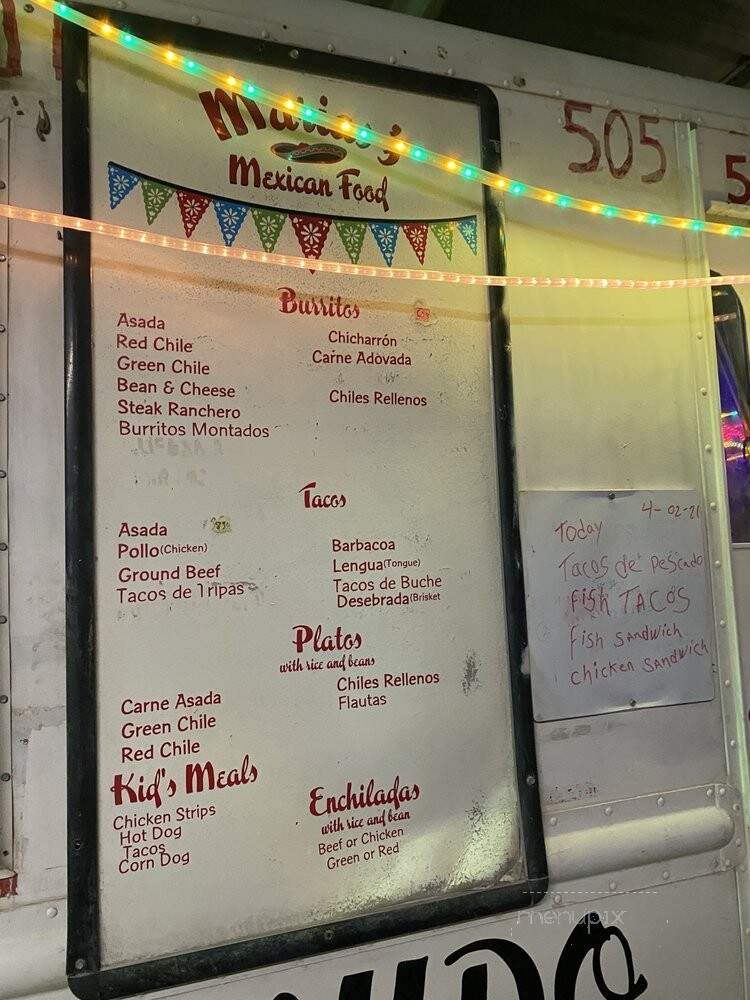 Mexican Food
505
5
Burritos
Asada
Red Chile
Green Chile
Bean & Cheese
Steak Ranchero
Burritos Montados
Chicharrón
Carne Adovada
Chiles Rellenos
Tacos
Asada
Pollo (Chicken)
Ground Beef
Tacos de Tripas
Barbacoa
Lengua (Tongue)
Tacos de Buche
Desebrada (Brisket
Platos
with rice and beans
Carne Asada
Green Chile
Red Chile
Chiles Rellenos
Flautas
Kid's Meals
Chicken Strips
Hot Dog
Tacos
Corn Dog
Enchiladas
with rice and bean
Beef or Chicken
Green or Red
Today 4-02-21
Tacos de Pescado
fish TACOS
fish sandwich
chicken sandwich
menupix
UDO